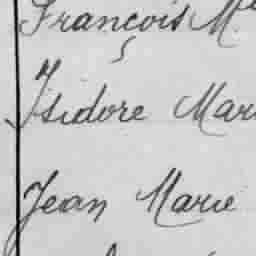 François M
Isidore Mar
Jean Marie